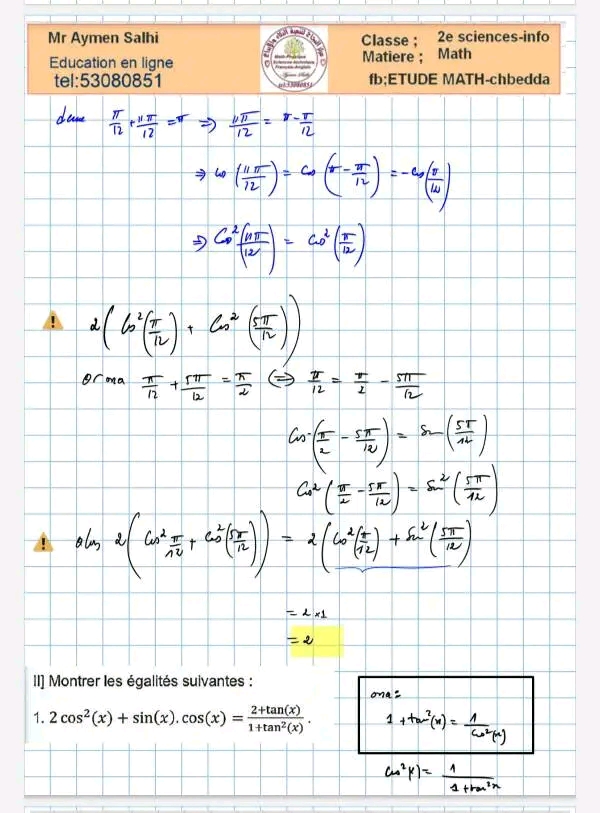 Mr Aymen Salhi
Education en ligne
tel:53080851
Classe ; 2e sciences-info
Matiere ; Math
fb;ETUDE MATH-chbedda
π/12 + 11π/12 = π ⇒ 11π/12 = π - π/12
⇒ cos (11π/12) = cos (π - π/12) = -cos(π/12)
⇒ cos²(11π/12) = cos²(π/12)
2(cos²(π/12) + cos²(5π/12))
or on a π/12 + 5π/12 = π/2 ⇔ π/12 = π/2 - 5π/12
cos(π/2 - 5π/12) = sin(5π/12)
cos²(π/2 - 5π/12) = sin²(5π/12)
2(cos² π/12 + cos²(5π/12)) = 2(cos²(π/12) + sin²(5π/12))
= 2 x 1
= 2
II] Montrer les égalités suivantes :
1. 2 cos²(x) + sin(x). cos(x) = 2+tan(x)/1+tan²(x) .
on a :
1 + tan²(x) = 1/cos²(x)
cos²(x) = 1/1+tan²x